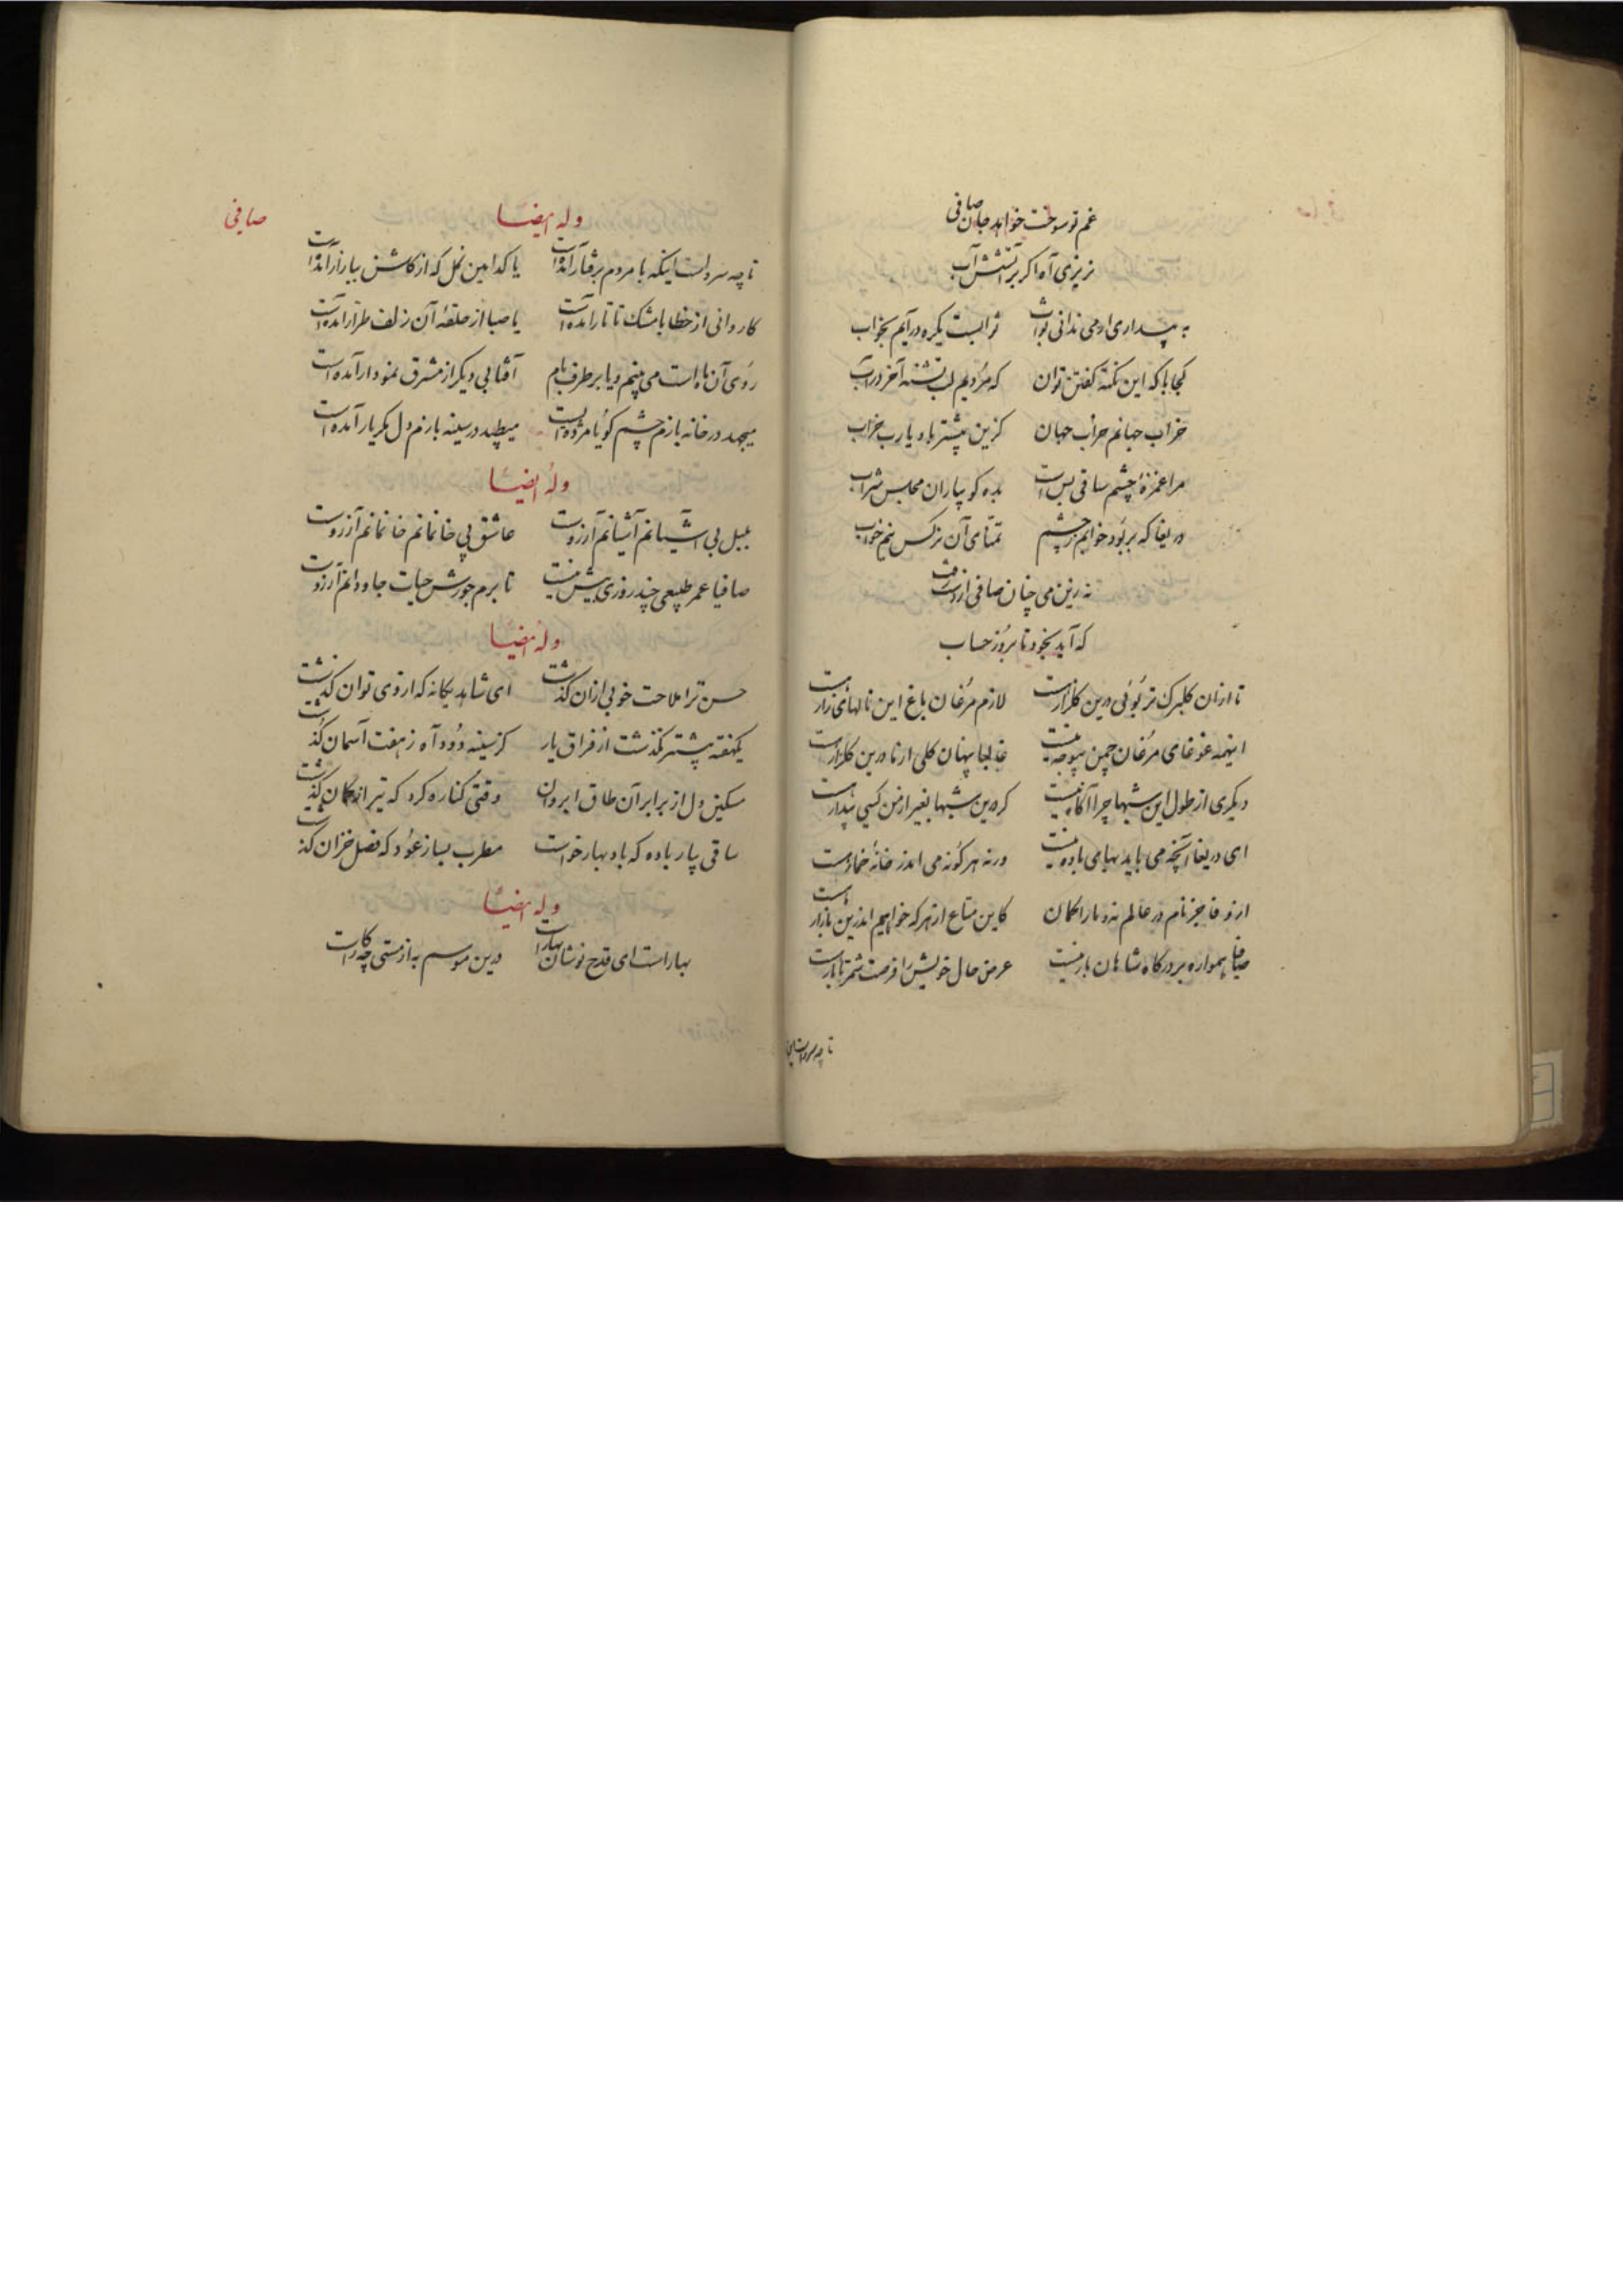 غم تو سوخت خواهد جان صافی
نریزی آه اگر بر آتشش آب
به بیداری ار می ندانی ثواب ثوابست یکره در آیم بخواب
کجا با که این نکته گفتن توان که مردیم لب تشنه آخر در آب
خراب جهانم خراب جهان کزین بیشتر باد یا رب خراب
مرا غمزهٔ چشم ساقی بس است بده گو بیاران مجلس شراب
دریغا که بربود خوابم ز چشم تمنای آن نرگس نیم خواب
نه زین می چنان صافی از دست رفت
که آید بخود تا بروز حساب
تا ازان گلبرگ تر بوئی درین گلزار هست لازم مرغان باغ این نالهای زار هست
اینهمه غوغای مرغان چمن بیوجه نیست غالبا پنهان گلی از ما درین گلزار هست
دیگری از طول این شبها چرا آگاه نیست گر درین شبها بغیر از من کسی بیدار هست
ای دریغا آنچه می باید بهای باده نیست ورنه هر گونه می اندر خانهٔ خمار هست
از وفا جز نام در عالم نبد ما را گمان کاین متاع از هر که خواهیم اندرین بازار هست
صافیا همواره بر درگاه شاهان بار نیست عرض حال خویش را فرصت شمر تا بار هست
تا چه سرو است این
صافی
وله ایضا
تا چه سرو است اینکه با مردم برفتار آمده است یا کدامین گل که از گلشن ببازار آمده است
کاروانی از خطا با مشک تاتار آمده است یا صبا از حلقهٔ آن زلف طرار آمده است
روی آن ماه است می بینم و یا بر طرف بام آفتابی دیگر از مشرق نمودار آمده است
میجهد در خانه بازم چشم گویا مژده ایست میطپد در سینه بازم دل مگر یار آمده است
وله ایضا
بلبل بی آشیانم آشیانم آرزوست عاشق بی خانمانم خانمانم آرزوست
صافیا عمر طبیعی چند روزی بیش نیست تا برم جورش حیات جاودانم آرزوست
وله ایضا
حسن ترا ملاحت خوبی ازان گذشت ای شاهد یگانه که از وی توان گذشت
یکهفته بیشتر نگذشت از فراق یار کز سینه دود آه ز هفت آسمان گذشت
مسکین دل از برابر آن طاق ابروان وقتی کناره کرد که تیر از کمان گذشت
ساقی بیار باده که باد بهار خواست مطرب بساز عود که فصل خزان گذشت
وله ایضا
بهار است ای قدح نوشان بهار است درین موسم به از مستی چه کار است